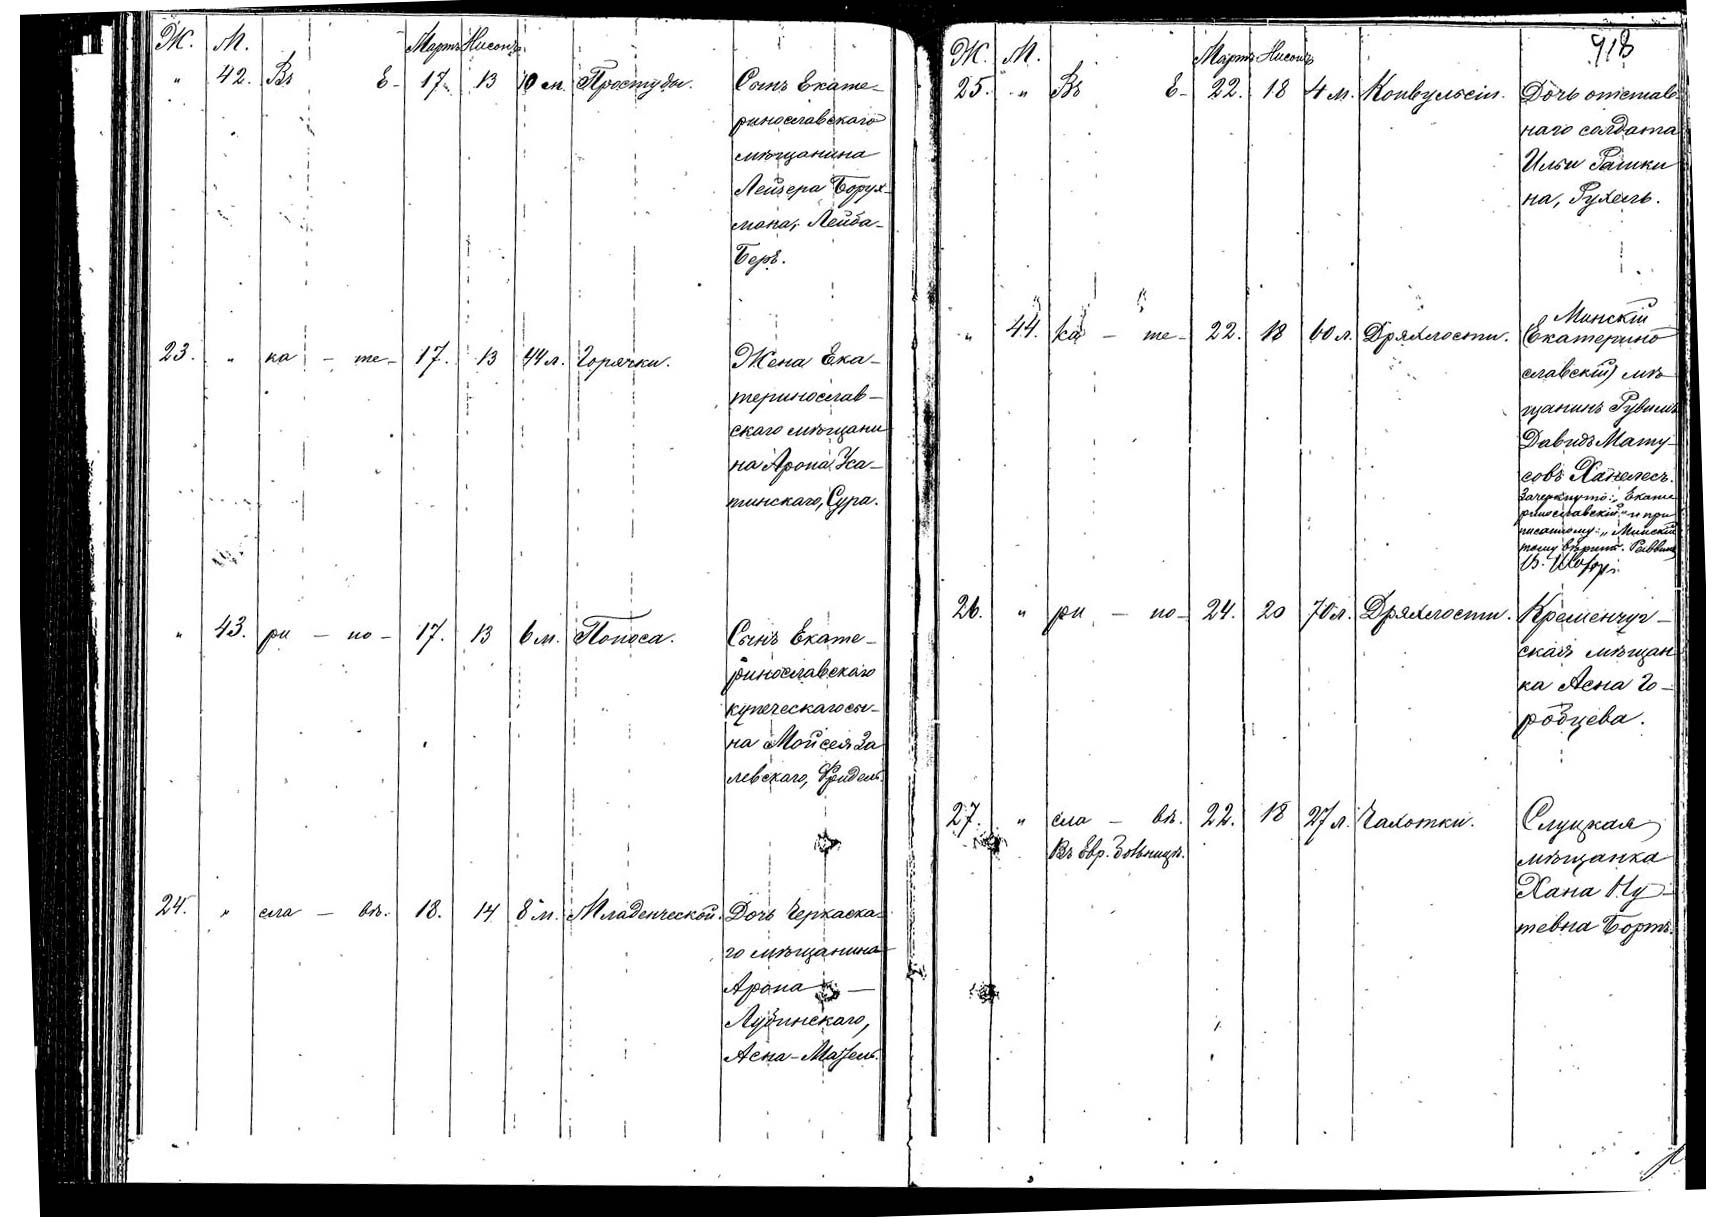 Ж. М. Мартъ Нисонъ
" 42. Въ Е- 17. 13 10 м. Простуды. Сынъ Екате-
ринославскаго
мѣщанина
Лейзера Борух-
мана, Лейба-
Беръ.
23. " ка - те- 17. 13 44 л. Горячки. Жена Ека-
теринослав-
скаго мѣщани
на Арона Уса-
тинскаго, Сура.
" 43. ри - но- 17. 13 6 м. Поноса. Сынъ Екате-
ринославскаго
купеческаго сы-
на Мойсея За
левскаго, Фридель.
24. " сла - вѣ. 18. 14 8 м. Младенческой. Дочь Черкаска-
го мѣщанина
Арона -
Лубинскаго,
Асна-Матель.
918
Ж. М. Мартъ Нисонъ
25. " Въ Е- 22. 18 4 м. Конвульсіи. Дочь отстав-
наго солдата
Ильи Рашки
на, Рухель.
Минскій
" 44. ка - те- 22. 18 60 л. Дряхлости. Екатерино
славскій) мѣ
щанинъ Рувимъ
Давидъ Мату-
совъ Ханелесъ.
Зачеркнуто: „Екате
ринославскій" и при
писанному: „Минскій"
тому вѣрить. Раввинъ
26. " ри - но- 24. 20 70 л. Дряхлости. Кременчуг-
ская мѣщан
ка Асна Го-
робцева.
27. " сла - вѣ. 22. 18 27 л. Чахотки. Слуцкая
Въ Евр. больницѣ. мѣщанка
Хана Ну-
тевна Бортъ.